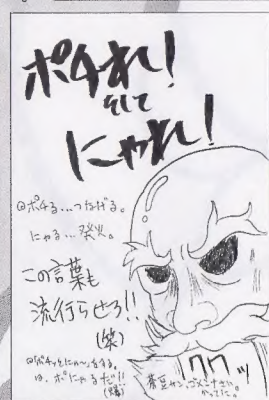 ポチれ!
そして
にゃれ!
@ポチる…つなげる。
にゃる…発火。
この言葉も
流行らせろ!!
(笑)
@「ポチッとにゃ〜」をする。
は、ポにゃるだ!!
(爆)
クワッ
ゴメンナさい
かってに。